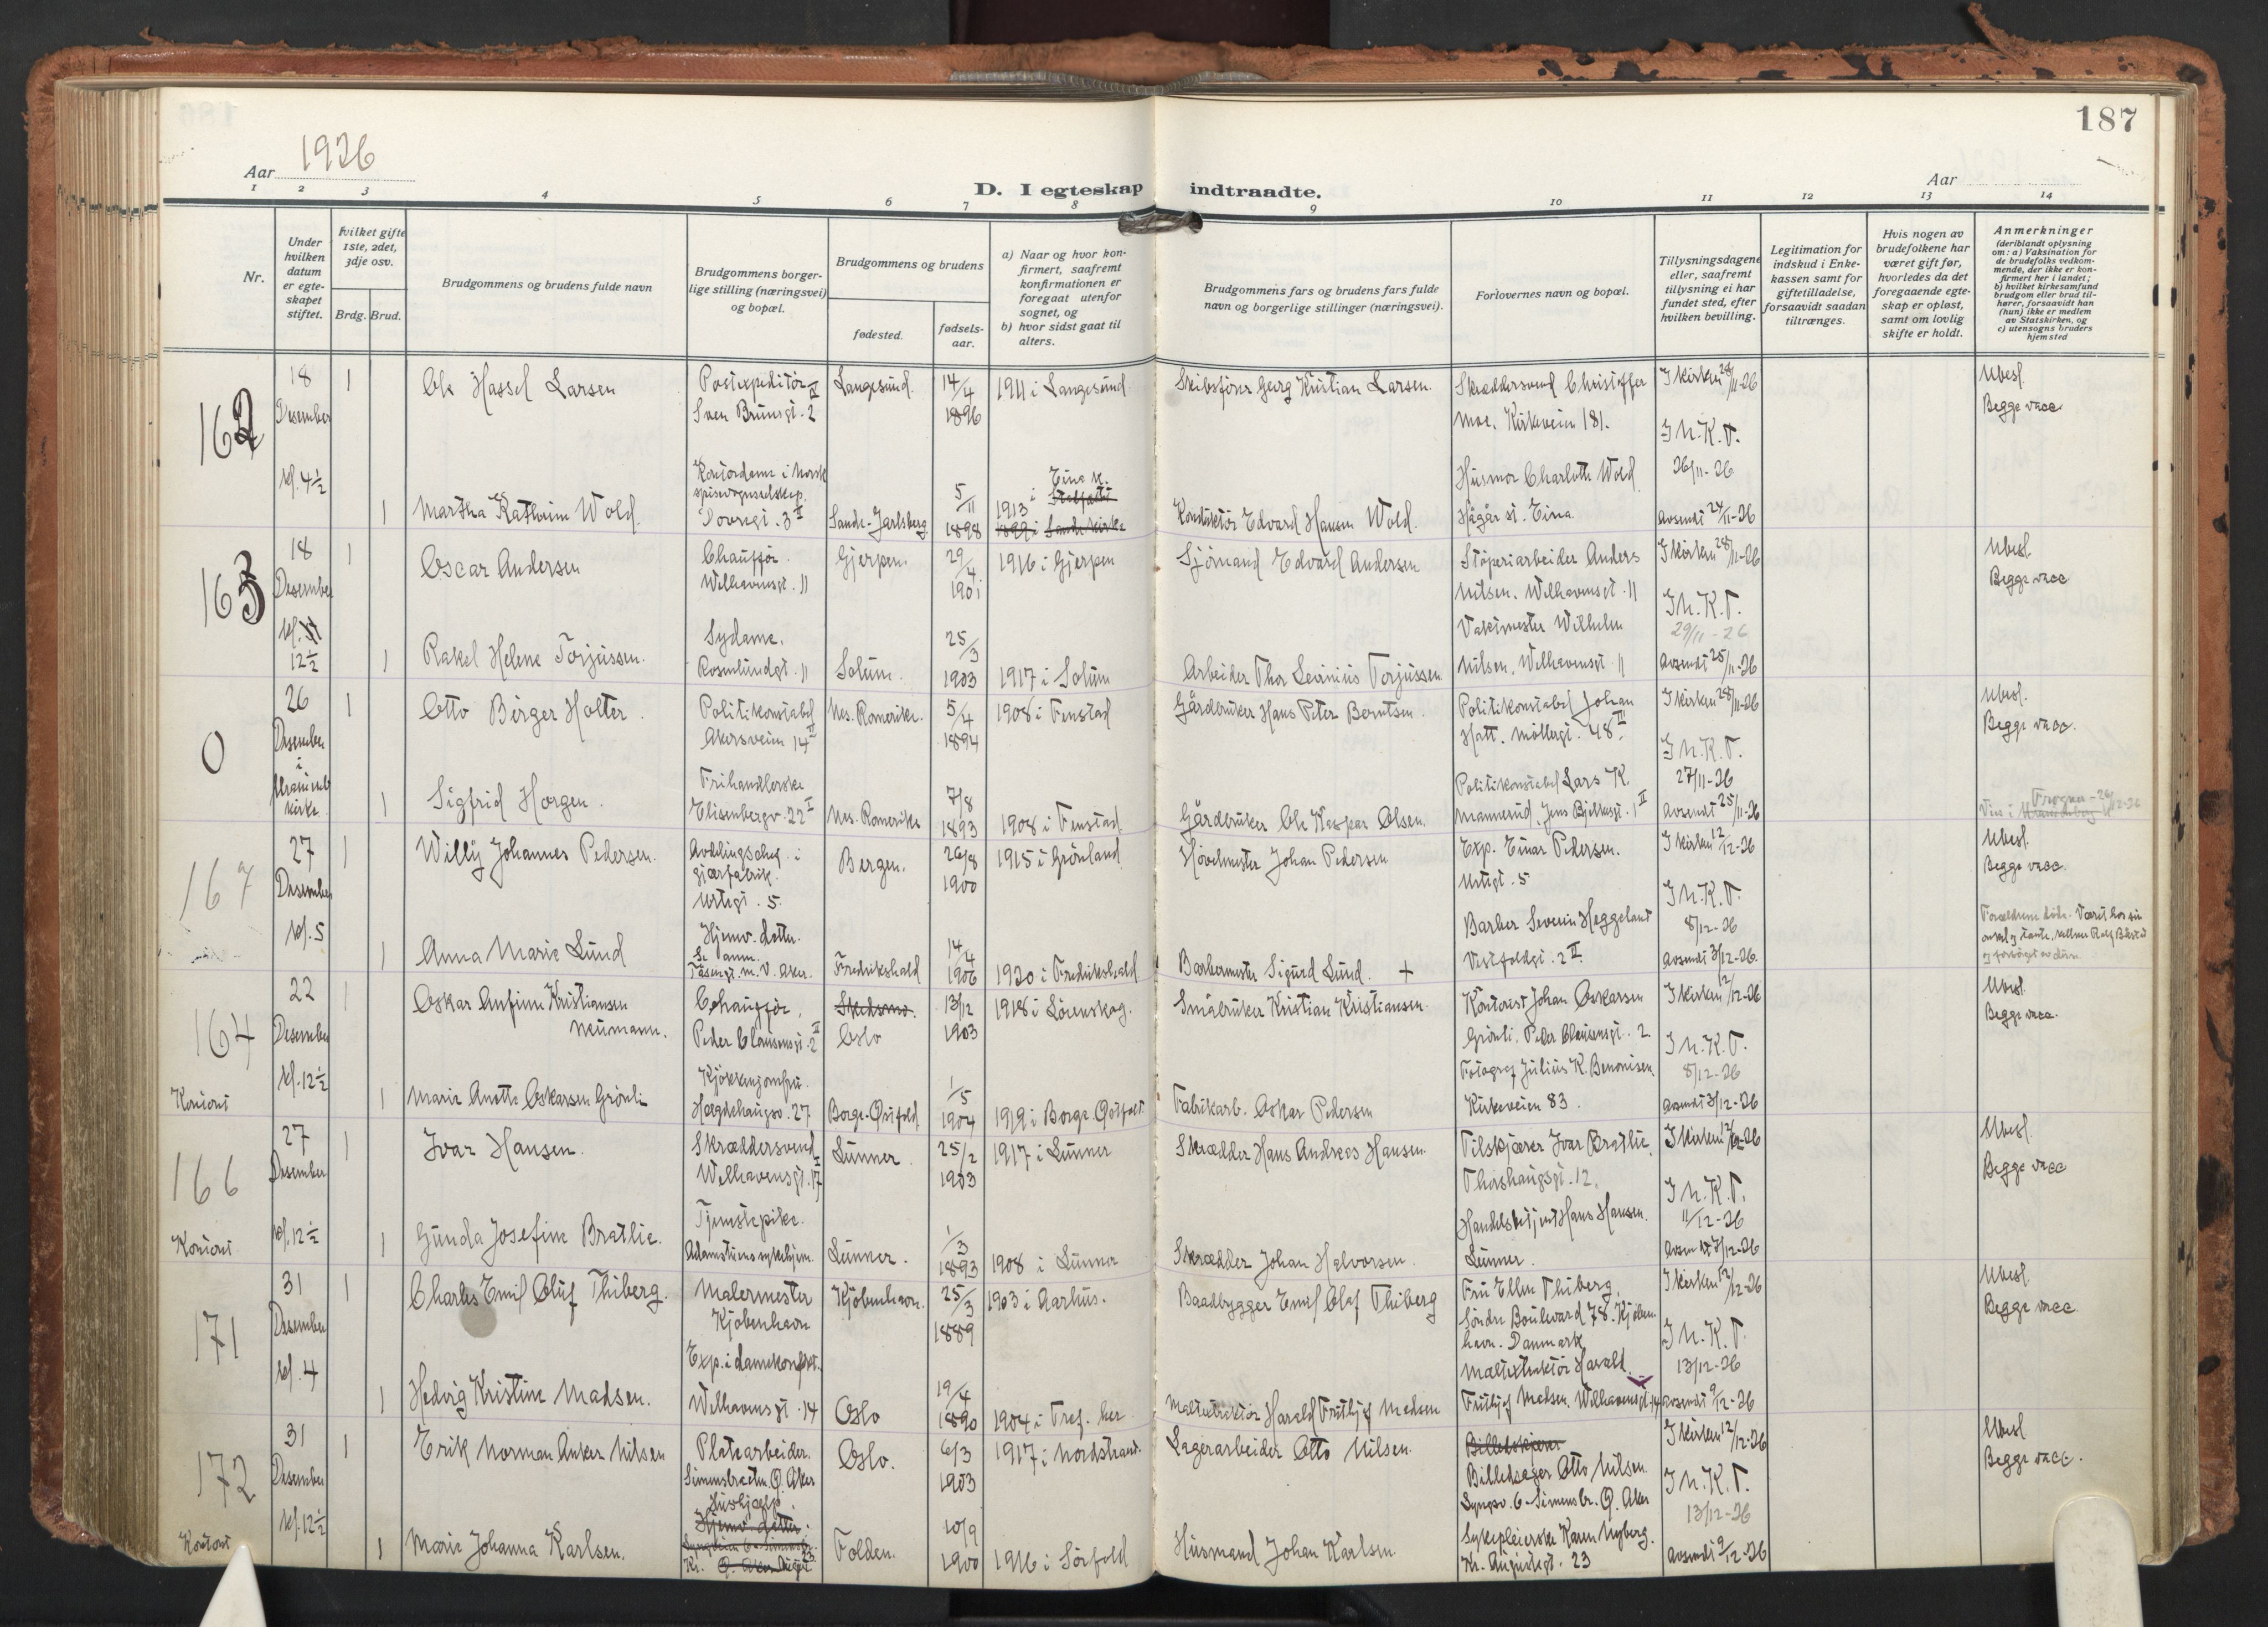 187
Aar 1926
Aar
D. I egteskap indtraadte.
1 2 3 4 5 6 7 8 9 10 11 12 13 14
Nr.
Under hvilken datum er egteskapet stiftet.
hvilket gifte 1ste, 2det, 3dje osv.
Brdg. Brud.
Brudgommens og brudens fulde navn
Brudgommens borgerlige stilling (næringsvei) og bopæl.
Brudgommens og brudens
fødested.
fødselsaar.
a) Naar og hvor konfirmert, saafremt konfirmationen er foregaat utenfor sognet, og
b) hvor sidst gaat til alters.
Brudgommens fars og brudens fars fulde navn og borgerlige stillinger (næringsvei).
Forlovernes navn og bopæl.
Tillysningsdagene eller, saafremt tillysning ei har fundet sted, efter hvilken bevilling.
Legitimation for indskud i Enkekassen samt for giftetilladelse, forsaavidt saadan tiltrænges.
Hvis nogen av brudefolkene har været gift før, hvorledes da det foregaaende egteskap er opløst, samt om lovlig skifte er holdt.
Anmerkninger
(deriblandt oplysning om: a) Vaksination for de brudefolks vedkommende, der ikke er konfirmert her i landet;
b) hvilket kirkesamfund brudgom eller brud tilhører, forsaavidt han (hun) ikke er medlem av Statskirken, og
c) utensogns bruders hjemsted
162
18 Desember kl. 4½
1 Ole Hassel Larsen
Postexpeditør Sven Brunsgt. 2 IV
Langesund. 14/4 1896
1911 i Langesund
Skibsfører Georg Kristian Larsen.
Skræddersvend Christoffer Moe. Kirkeveien 181.
I kirken 28/11-26
I N.K.T. 26/11-26
Ubesl. Begge vacc.
1 Martha Kathrine Wold.
Kontordame i Norsk
Dovregt. 3 II
Sande-Jarlsberg 5/11 1898
1913 i Eina k.
Konduktør Edvard Hansen Wold.
Husmor Charlotte Wold
Hågår st. Eina.
Avsendt 24/11-26
163
18 Desember kl. 12½
1 Oscar Andersen
Chauffør. Welhavensgt. 11
Gjerpen. 29/4 1901
1916 i Gjerpen
Sjömand Edvard Andersen
Støperiarbeider Anders Nilsen. Welhavensgt. 11
I kirken 28/11-26
I N.K.T. 29/11-26
Ubesl. Begge vacc
1 Rakel Helene Torjussen.
Sydame. Rosenlundgt. 11
Solum. 25/3 1903
1917 i Solum
Arbeider Thor Levinius Torjussen
Vaktmester Wilhelm Nilsen. Welhavensgt. 11
Avsendt 25/11-26
0
26 Desember i kirke.
1 Otto Birger Holter.
Politikonstabel Akersveien 14 II
Nes. Romerike. 5/4 1894
1908 i Fenstad
Gårdbruker Hans Peter Berntsen.
Politikonstabel Johan Hatt. Møllergt. 48 III
I kirken 28/11-26
I N.K.T. 27/11-26
Ubesl. Begge vacc.
1 Sigfrid Horgen.
Frihandlerske Elisenbergv. 22 I
Nes. Romerike 7/8 1893
1908 i Fenstad.
Gårdbruker Ole Kaspar Olsen.
Politikonstabel Lars K. Mannerud, Jens Bjelkesgt. 1 II
Avsendt 25/11-26
Frogner - 26/12-26
167
27 Desember kl. 5
1 Willy Johannes Pedersen.
Avdelingschef i gjærfabrik. Urtegt. 5.
Bergen. 26/8 1900
1915 i Grønland
Hövelmester Johan Pedersen
Exp. Einar Pedersen. Urtegt. 5
I kirken 12/12-26
I N.K.T. 8/12-26
Ubesl. Begge vacc.
1 Anna Marie Lund
Hjemv. datter.
Tåsengt. m. V. Aker.
Fredrikshald 14/4 1906
1920 i Fredrikshald
Barbermester Sigurd Lund. +
Barber Severin Heggeland Vestfoldgt. 2 II.
Avsendt 3/12-26.
Forældrene døde. Været hos sin onkel og tante,
164
Kontoret
22 Desember kl. 12½
1 Oskar Anfinn Kristiansen Neumann.
Chauffør, Peder Clausensgt. 2 II
Skedsmo. Oslo 13/12 1903
1918 i Lörenskog.
Småbruker Kristian Kristiansen.
Kontorist Johan Oskarsen Grönli. Peder Clausensgt. 2
I kirken 12/12-26
I N.K.T. 8/12-26
Ubesl. Begge vacc.
1 Marie Anette Oskarsen Grönli
Kjøkkenjomfru. Hægdehaugsv. 27
Borge-Östfold 1/5 1904
1919 i Borge Östfold
Fabrikarb. Oskar Pedersen
Fotograf Julius K. Benonisen. Kirkeveien 83.
Avsendt 3/12-26
166
Kontoret
27 Desember kl. 12½
1 Ivar Hansen.
Skræddersvend Welhavensgt. 17 I
Lunner. 25/2 1903
1917 i Lunner
Skrædder Hans Andreas Hansen.
Tilskjærer Ivar Bratlie. Thorshaugsgt. 12.
I kirken 12/12-26
I N.K.T. 11/12-26
Ubesl. Begge vacc
1 Gunda Josefine Bratlie.
Tjenstepike. Adamstuens sykehjem.
Lunner. 1/3 1893
1908 i Lunner
Skrædder Johan Halvorsen.
Handelsbetjent Hans Hansen. Lunner.
Avsendt 7/12-26
171
31 Desember kl. 4
1 Charles Emil Oluf Thiberg.
Malermester Kjöbenhavn
Kjöbenhavn. 25/3 1889
1903 i Aarhus.
Baadbygger Emil Olaf Thiberg
Fru Ellen Thiberg, Söndre Boulevard 78. Kjöbenhavn. Danmark
I kirken 12/12-26
I N.K.T. 13/12-26
Ubesl. Begge vacc.
1 Hedvig Kristine Madsen.
Exp. i damekonfekt. Welhavensgt. 14
Oslo 19/4 1890
1904 i Tref. her
Maltextraktör Harald Frithjof Madsen
Maltextraktör Harald Frithjof Madsen. Welhavensgt. 14
Avsendt 9/12-26
172
Kontoret
31 Desember kl. 12½
1 Erik Norman Anker Nilsen
Platearbeider. Simensbråten. Ø. Aker
Oslo. 6/3 1903
1917 i Nordstrand.
Lagerarbeider Otto Nilsen.
Billedskjærer
Otto Nilsen
Lyngsv. 6 - Simensbr. Ø. Aker
I kirken 12/12-26
I N.K.T. 13/12-26
Ubesl. Begge vacc.
1 Marie Johanna Karlsen.
Hushjælp. Hjemv. datter.
Folden. 10/9 1900
1916 i Sörfold
Husmand Johan Karlsen.
Sykepleierske Karen Nyberg. Kr. Augustsgt. 23
Avsendt 9/12-26